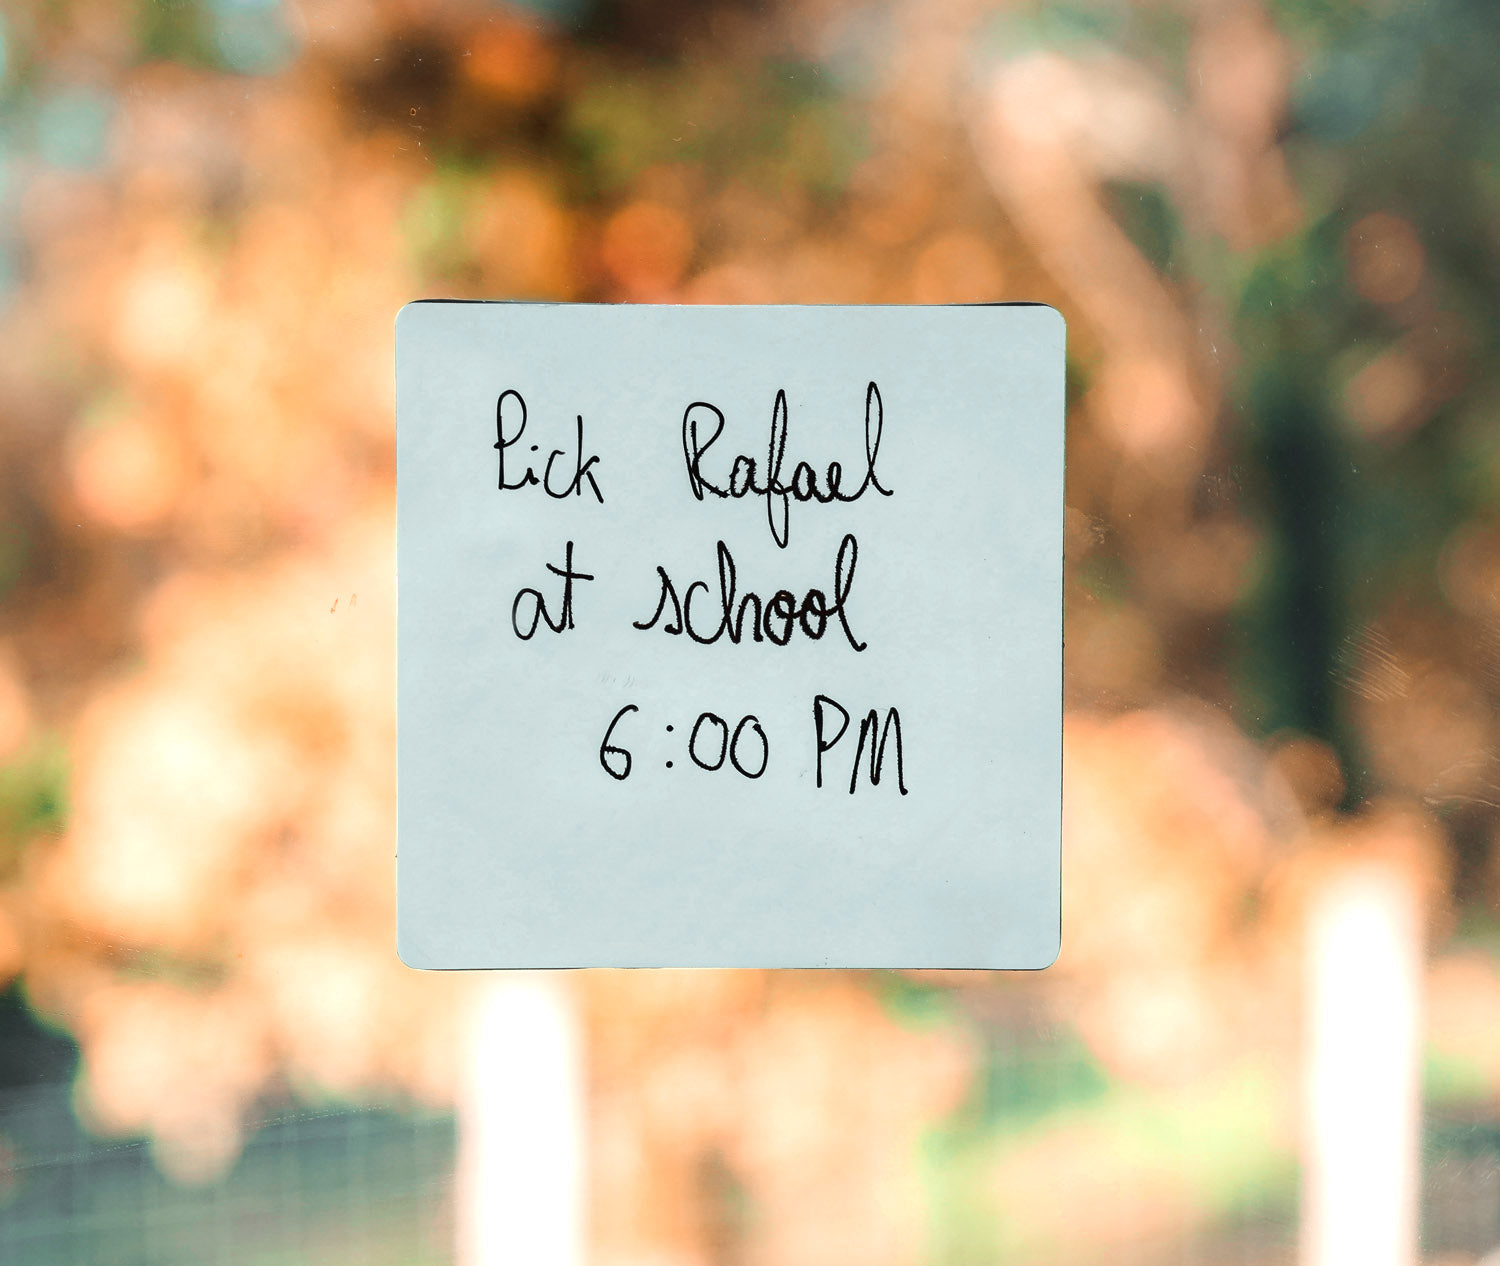 Pick Rafael
at school
6:00 PM